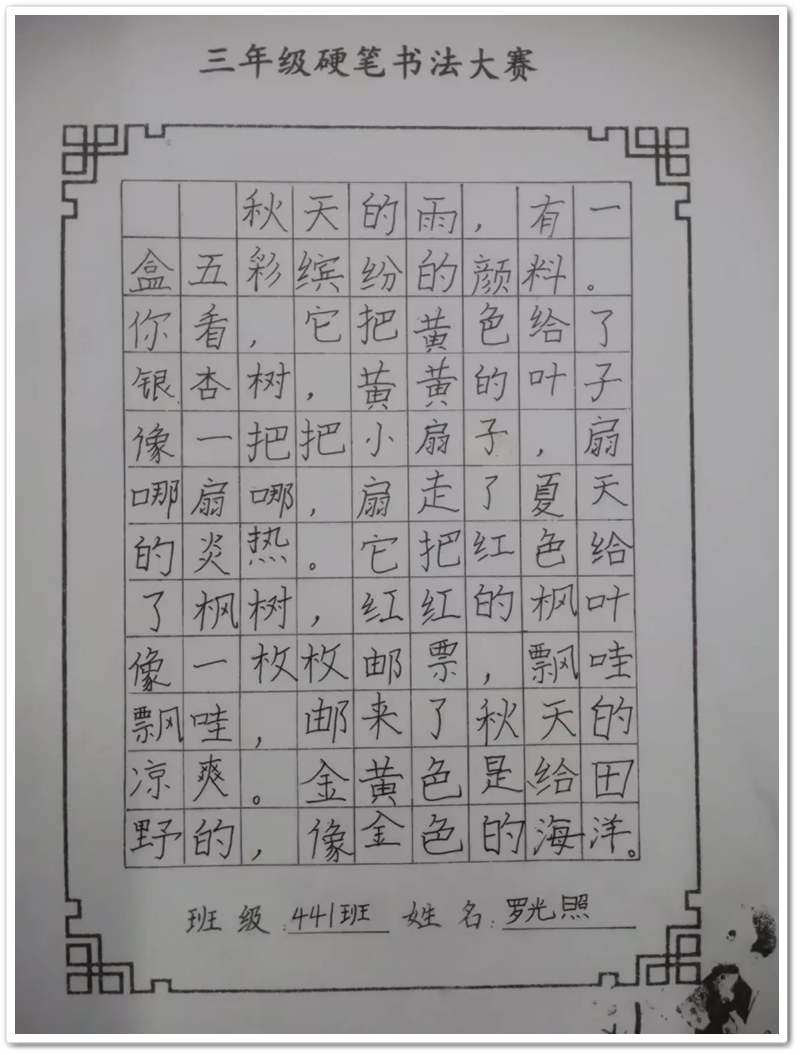 三年级硬笔书法大赛
秋天的雨，有一
盒五彩缤纷的颜料。
你看，它把黄色给了
银杏树，黄黄的叶子
像一把把小扇子，扇
哪扇哪，扇走了夏天
的炎热。它把红色给
了枫树，红红的枫叶
像一枚枚邮票，飘哇
飘哇，邮来了秋天的
凉爽。金黄色是给田
野的，像金色的海洋。
班级:441班 姓名:罗光照